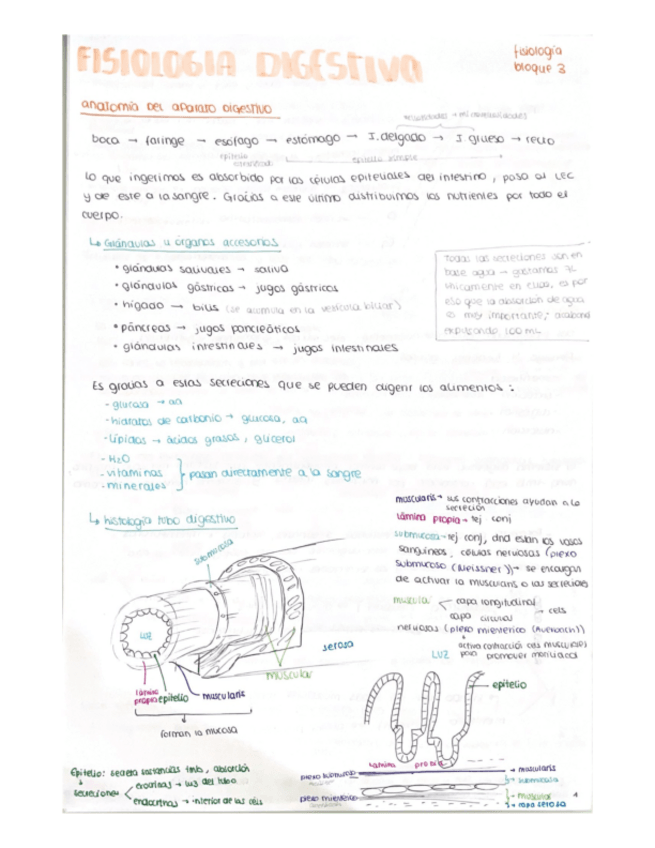 FISIOLOGIA DIGESTIVA
fisiología
bloque 3
anatomia del aparato digestivo
boca → faringe → esófago → estómago → I. delgado → I. grueso → recto
epitelio
epitelio simple
Lo que ingerimos es absorbido por las células epiteliales del intestino, pasa al LEC
y de este a la sangre. Gracias a este último distribuimos los nutrientes por todo el
cuerpo.
↳ Glándulas u órganos accesorios
• glándulas salivales → saliva
• glándulas gástricas → jugos gástricos
• hígado → bilis (se acumula en la vesícula biliar)
• páncreas → jugos pancreáticos
• glándulas intestinales → jugos intestinales
Todas las secreciones son en
base agua → gastamos 7L
únicamente en ellas, es por
eso que la absorción de agua
es muy importante,
expulsando 100 mL
Es gracias a estas secreciones que se pueden digerir los alimentos:
- glucosa → aa
- hidratos de carbonio → glucosa, aa
- lípidos → ácidos grasos, glicerol
- H2O
- vitaminas
- minerales
pasan directamente a la sangre
↳ histología tubo digestivo
muscularis → sus contracciones ayudan a la
secreción
lámina propia → tej conj
submucosa → tej conj, dnd están los vasos
sanguíneos, células nerviosas (plexo
submucoso (Meissner)) → se encargan
de activar la muscularis o las secreciones
muscular
capa longitudinal
capa circular
→ cels
nerviosas (plexo mientérico (Auerbach))
activa contracción
para promover motilidad
LUZ
submucosa
LUZ
serosa
muscular
lámina
propia
epitelio
muscularis
forman la mucosa
epitelio
lámina propia
Epitelio: secreta sustancias tmb, absorción
secreciones
exocrinas → luz del tubo
endocrinas → interior de las cells
plexo submucoso
plexo mientérico
- muscularis
- submucosa
- muscular
- capa serosa
1